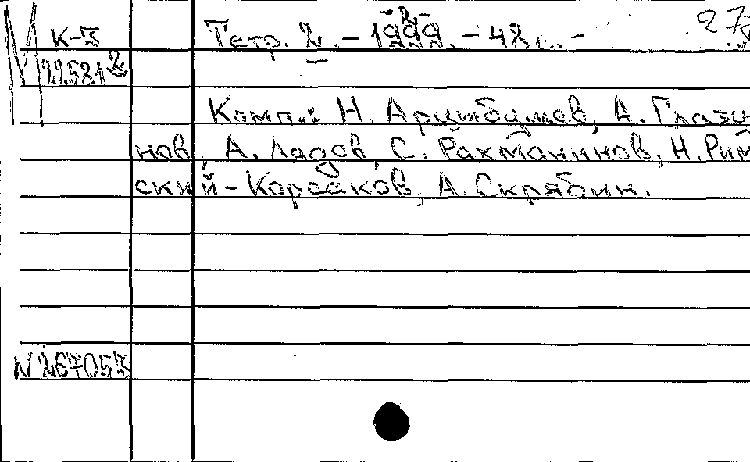 К-3 Тетр. 2. - 1999. - 48 с. - 27
М
Комп.: Н. Арцыбушев, А. Глазу
нов, А. Лядов, С. Рахманинов, Н. Рим
ский-Корсаков, А. Скрябин.
N 267057